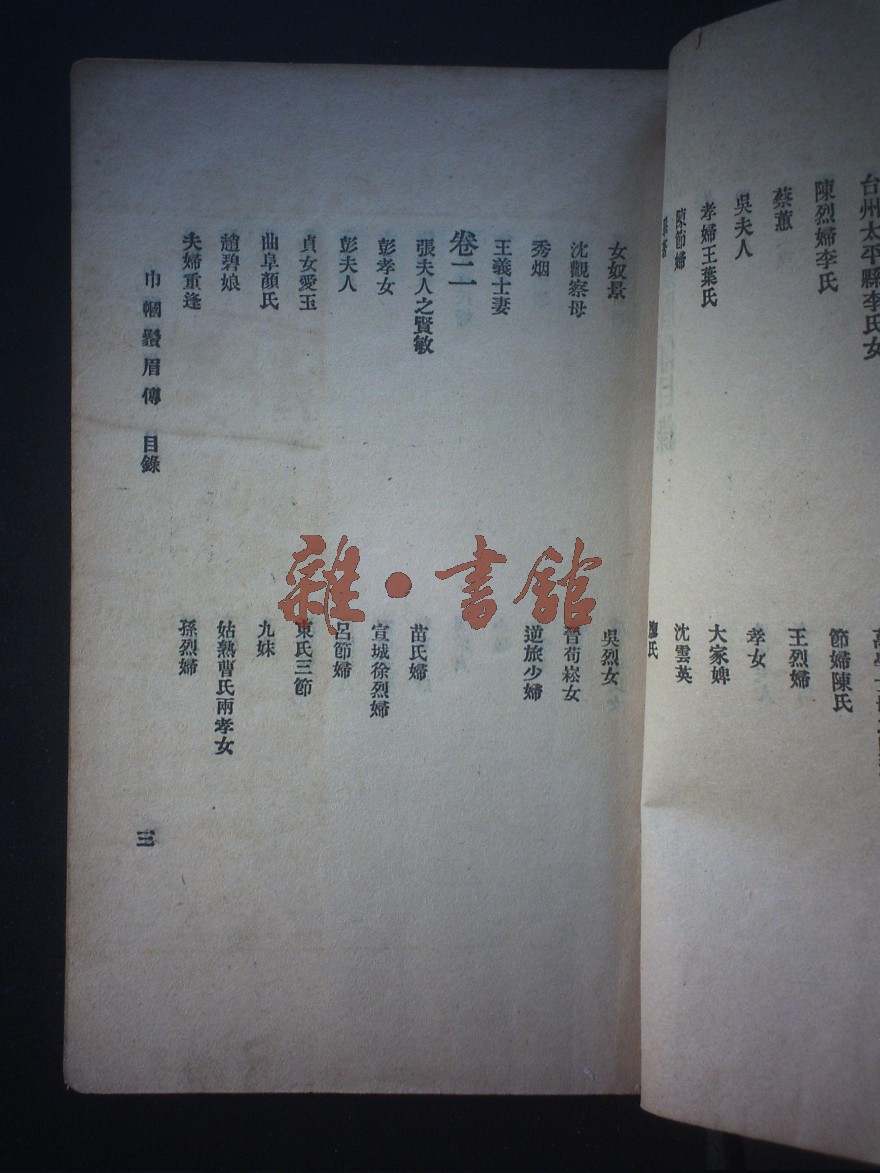 台州太平縣李氏女
陳烈婦李氏
節婦陳氏
蔡蕙
王烈婦
吳夫人
孝女
孝婦王葉氏
大家婢
陳節婦
沈雲英
女奴景
吳烈女
沈觀察母
晉荀崧女
秀烟
逆旅少婦
王義士妻
卷二
張夫人之賢敏
苗氏婦
彭孝女
宣城徐烈婦
彭夫人
呂節婦
貞女愛玉
東氏三節
曲阜顏氏
九妹
趙碧娘
姑熟曹氏兩孝女
夫婦重逢
孫烈婦
巾幗鬚眉傳 目錄
三
雜·書館